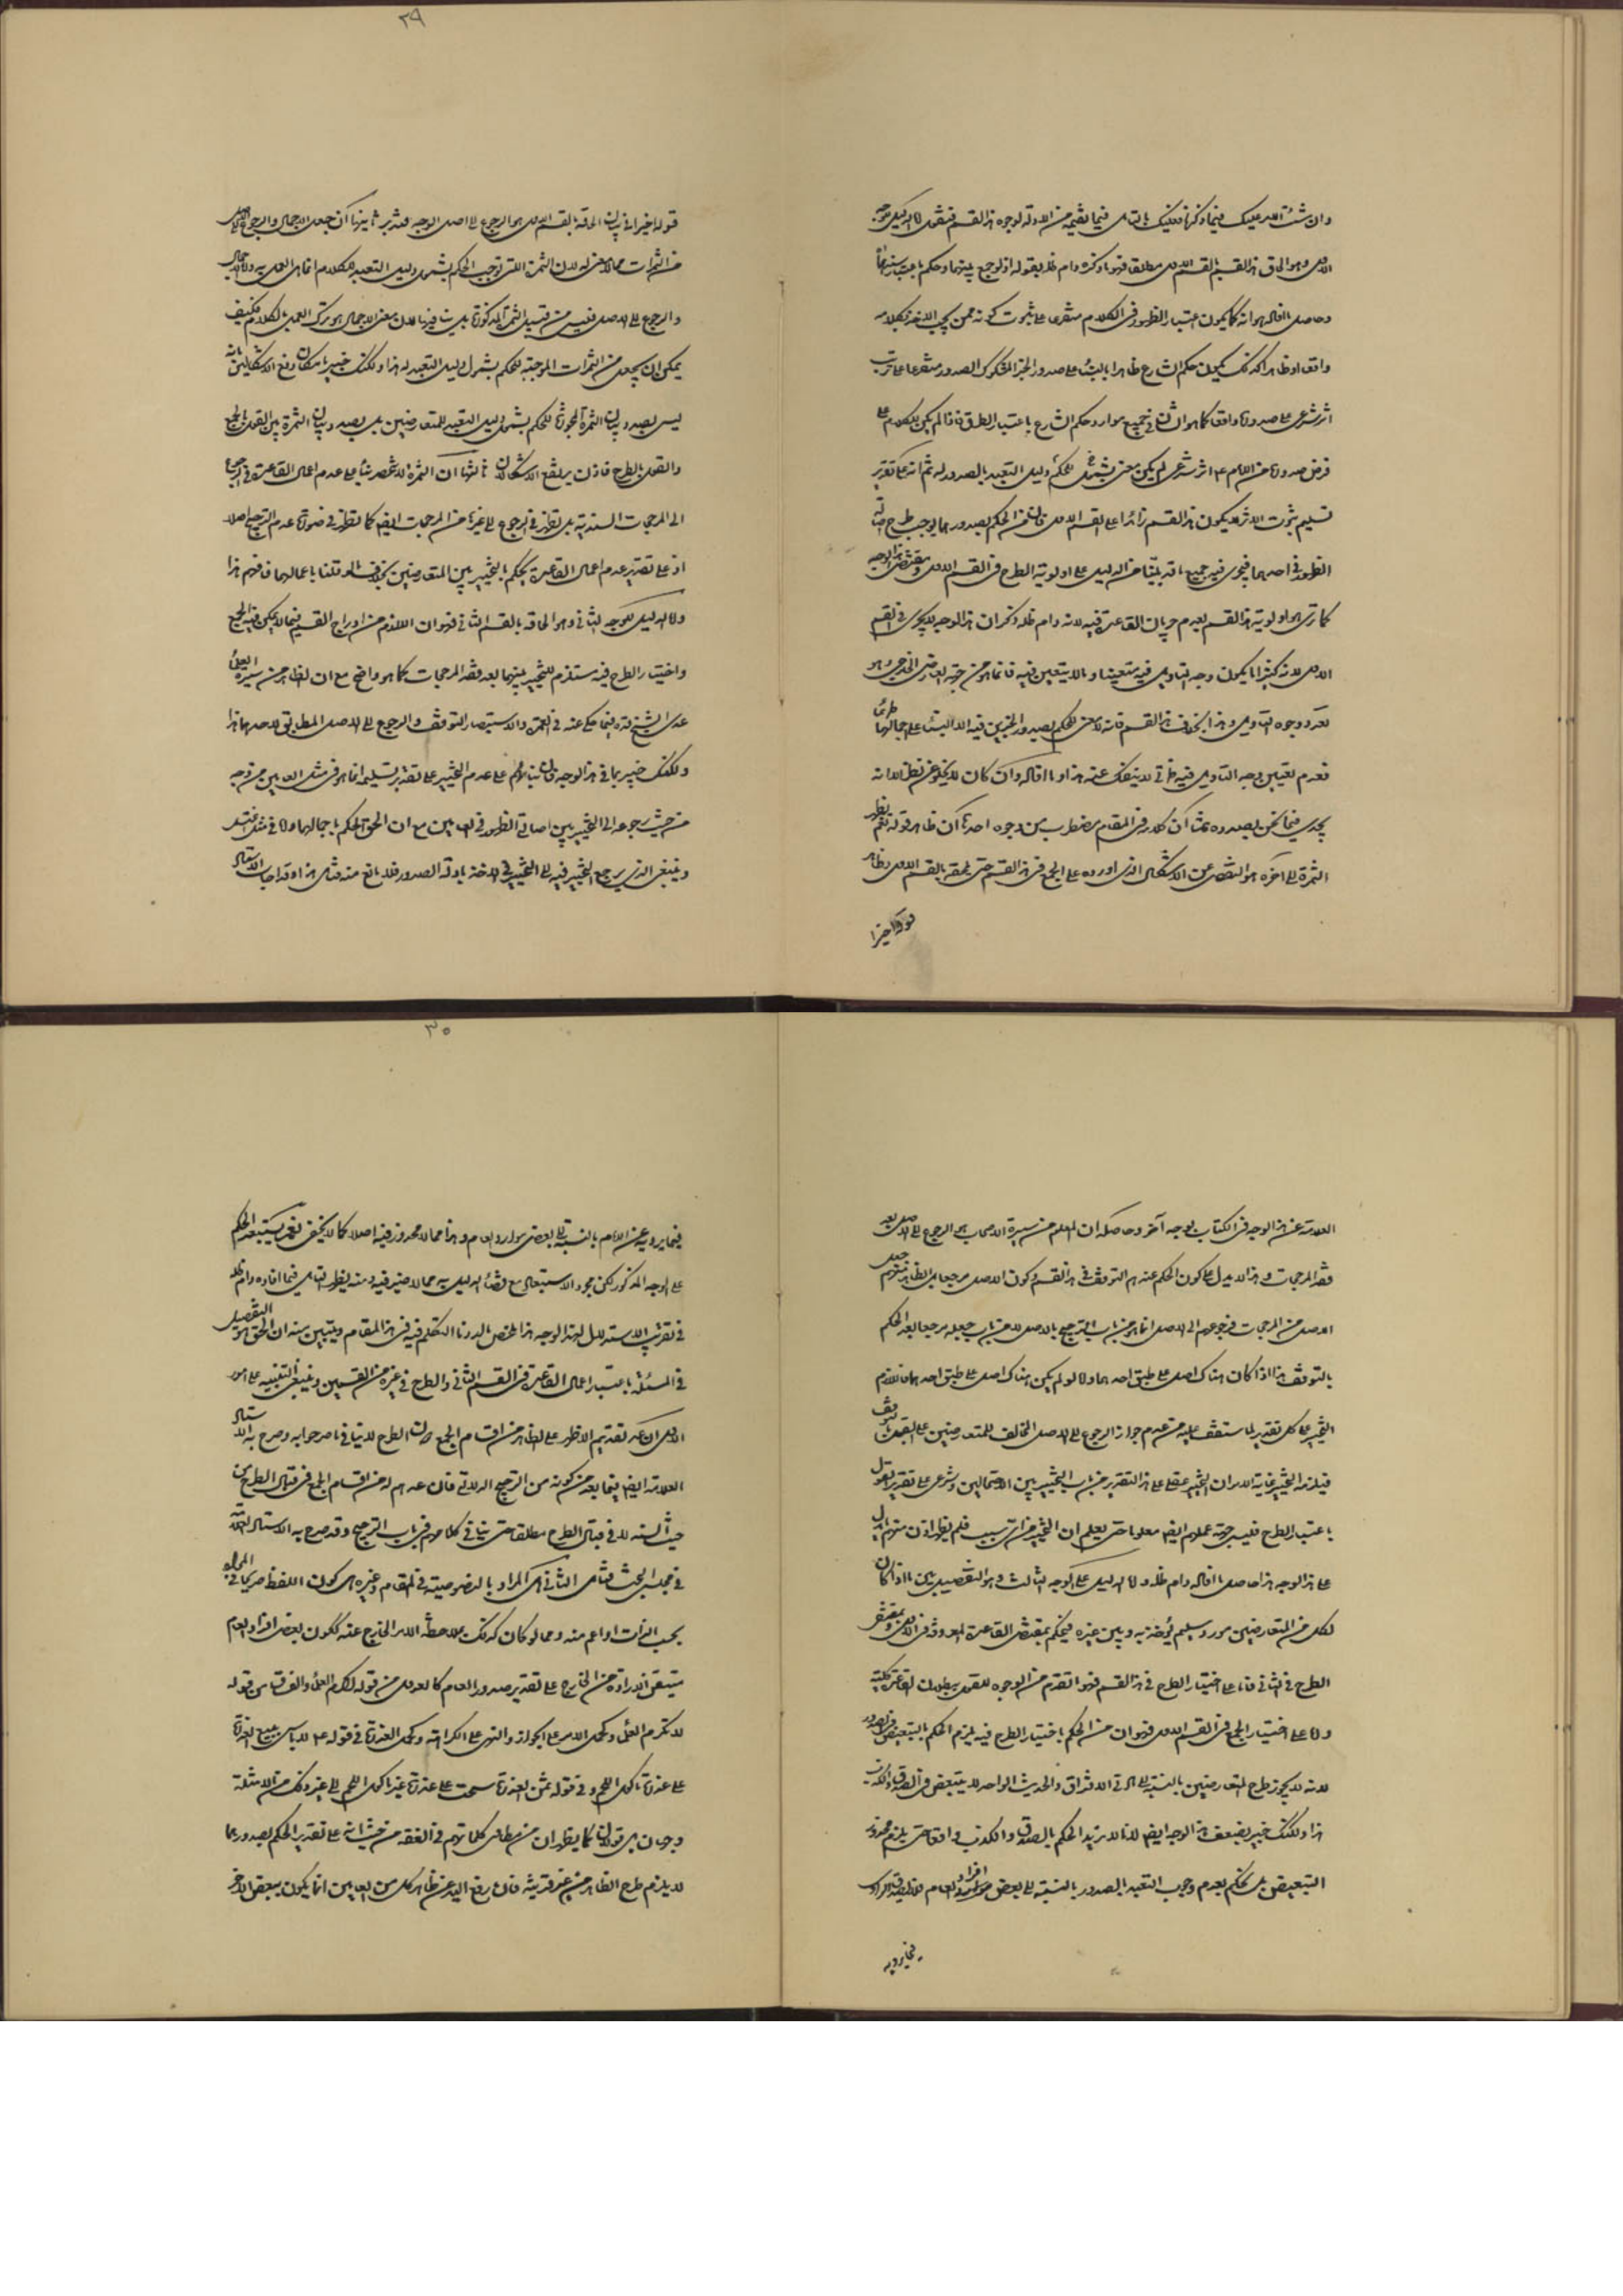 ٢٩
وان شئت الامر عليك فيما ذكرنا فعليك بالتامل فيما نقيمه من الادلة لوجوه هذا القسم فنقول اما الدليل للوجه
الاول وهو الحاق هذا القسم بالقسم الاول مطلقا فهو ما ذكره دام ظله بقوله اذ لو جمع بينهما وحكم باعتبار سندهما
وحاصل ما افاله هو انه كما يكون اعتبار الظهور في الكلام متفرعا على ثبوت كونه ممن يجب الاخذ بكلامه
واقعا او ظاهرا كذلك يكون حكم الشارع ظاهرا بالبناء على صدور الخبر المشكوك الصدور متفرعا على ترتب
اثر شرعي على صدوره واقعا كما هو الشان في جميع موارد حكم الشارع باعتبار الطرق فاذا لم يكن للكلام على
فرض صدوره من الامام ع اثر شرعي لم يكن معنى لشمول الحكم دليل التعبد بالصدور له ثم انه على تقدير
تسليم ثبوت الاثر يكون هذا القسم زائدا على القسم الاول فان من الحكم بصدورهما يوجب طرح اصالة
الظهور في احدهما فيجري فيه جميع ما قد بيّنا من الدليل على اولوية الطرح في القسم الاول ومقتضى هذا الوجه
كما ترى هو اولوية هذا القسم بعدم جريان القاعدة فيه لانه دام ظله ذكر ان هذا الوجه لا يجري في القسم
الاول لانه كثيرا ما يكون وجه التاويل فيه متعينا وما لا يتعين فيه فانما هو من جهة العارض الخارجي وهو
تعدد وجوه التاويل وهذا بخلاف هذا القسم فانه لا معنى للحكم بصدور الخبرين فيه الا البناء على اجمالهما
فعدم تعيين وجه التاويل فيه ذاتي لا ينفك عنه هذا وما افاله وان كان لا يخلو عن نظر الا انه
يجدي فيما نحن بصدده ثم ان كلامه في المقام مضطرب من وجوه احدها ان ظاهر قوله نعم يظهر
الثمرة الى اخره هو التفصي عن الاشكال الذي اورده على الجمع في هذا القسم حتى يلحقه بالقسم الاول وظاهر
قوله اخيرا
قوله اخيرا في بيان الحاقه بالقسم الاول هو الرجوع الى اصل الوجه فتدبر ثانيها ان جعل الاجمال والرجوع الى الاصل
من الثمرات مما لا معنى له لان الثمرة التي توجب الحكم بشمول دليل التعبد للكلام انما هي العمل به واما الاجمال
والرجوع الى الاصل فليس من قبيل الثمرة المذكورة بل ينافيها لان معنى الاجمال هو ترك العمل بالكلام فكيف
يمكن ان يجعل من الثمرات الموجبة للحكم بشمول دليل التعبد له هذا ولكنك خبير بامكان دفع الاشكالين بانه
ليس بصدد بيان الثمرة المجوزة للحكم بشمول دليل التعبد للمتعارضين بل بصدد بيان الثمرة بين القول بالجمع
والقول بالطرح فاذن يرتفع الاشكالان ثالثها ان الثمرة لا تنحصر بناء على عدم اعمال القاعدة في الرجوع
الى المرجحات السندية بل تظهر في الرجوع الى غيرها من المرجحات ايضا كما تظهر في صورة عدم الترجيح اصلا
اذ على تقدير عدم اعمال القاعدة يحكم بالتخيير بين المتعارضين بخلاف ما لو قلنا باعمالها فافهم هذا
واما الدليل للوجه الثاني وهو الحاقه بالقسم الثاني فهو ان اللازم من ادراج القسم فيما لا يمكن فيه الجمع
واختيار الطرح فيه مستلزم للتخيير بينهما بعد فقد المرجحات كما هو واضح مع ان الظاهر من سيرة العلماء
عدى الشيخ قده فيما حكي عنه في العدة والاستبصار التوقف والرجوع الى الاصل المطابق لاحدهما هذا
ولكنك خبير بما في هذا الوجه فان بنائهم على عدم التخيير على تقدير تسليمه انما هو في مثل العامين من وجه
من حيث رجوعه الى التخيير بين اصالتي الظهور في العامين مع ان الحق الحكم باجمالهما واما في مثل المقام
وينبغي الذي يرجع التخيير فيه الى التخيير في الاخذ بادلة الصدور فلا مانع منه فتامل هذا وقد اجاب الاستاد
٣٠
العلامة عن هذا الوجه في الكتاب بوجه آخر وحاصله ان المعلوم من سيرة الاصحاب هو الرجوع الى الاصل بعد
فقد المرجحات وهذا لا يدل على كون الحكم عندهم التوقف في هذا القسم وكون الاصل مرجعا بل الظاهر منهم جعل
الاصل من المرجحات فرجوعهم الى الاصل انما هو من باب الترجيح بالاصل لا من باب جعله مرجعا بعد الحكم
بالتوقف هذا اذا كان هناك اصل على طبق احدهما واما لو لم يكن هناك اصل على طبق احدهما فاللازم
التخيير على كل تقدير لما ستقف عليه من عدم جواز الرجوع الى الاصل المخالف للمتعارضين على القول بالتوقف
فيلزمه التخيير غاية الامر ان التخيير عقلي على هذا التقدير من باب التخيير بين الاحتمالين وشرعي على تقدير القول
باعتبار الطرح فليس جهة عملهم ايضا معلوما حتى يعلم ان التخيير من اي سبب فلم يظهر اذن منهم ما يدل
على هذا الوجه هذا حاصل ما افاله دام ظله واما الدليل على الوجه الثالث وهو التفصيل بين ما اذا كان
لكل من المتعارضين مورد سليم يؤخذ به وبين غيره فيحكم بمقتضى القاعدة المعروفة في الاول وبمقتضى
الطرح في الثاني فاما على اختيار الطرح في هذا القسم فهو ما تقدم من الوجوه للقول ببطلان القاعدة كلية
واما على اختيار الجمع في القسم الاول فهو ان من الحكم باختيار الطرح فيه يلزم الحكم بالتبعيض في الصدور
لانه لا يجوز طرح المتعارضين بالنسبة الى مادتي الافتراق والحديث الواحد لا يتبعض في الصدق والكذب
هذا ولكنك خبير بضعف هذا الوجه ايضا لانا لا نريد الحكم بالصدق والكذب واقعا حتى يلزم محذور
التبعيض بل نحكم بعدم وجوب التعبد بالصدور بالنسبة الى بعض افراد العام
فيما يرويه
فيما يرويه عن الامام بالنسبة الى بعض موارد العام وهذا مما لا محذور فيه اصلا كما لا يخفى نعم يستبعد الحكم
على الوجه المذكور لكن مجرد الاستبعاد مع وفاء الدليل به مما لا ضير فيه ومنه يظهر التامل فيما افاده دام ظله
في تقريب الاستدلال لهذا الوجه هذا ملخص ما اردنا التكلم فيه في هذا المقام ويتبين منه ان الحق هو التفصيل
في المسئلة باعتبار اعمال القاعدة في القسم الثاني والطرح في غيره من القسمين وينبغي التنبيه على امور
الاول ان عد تقديم الاظهر على الظاهر من اقسام الجمع وان الطرح لا ينافي ما صرحوا به وصرح به الاستاد
العلامة ايضا فيما بعد من كونه من الترجيح الدلالي فان عدهم له من اقسام الجمع في قبال الطرح من
حيث السند لا في قبال الطرح مطلقا حتى ينافي كلامهم في باب الترجيح وقد صرح به الاستاد العلامة
في مجلس البحث فتامل الثاني ان المراد بالنصوصية في المقام وغيره هي كون اللفظ صريحا في المراد
بحسب الذات او اعم منه ومما لو كان كذلك بملاحظة الامر الخارج عنه ككون بعض افراد العام
متيقن الارادة من الخارج على تقدير صدور العام كالعدول من قوله اكرم العلماء والفساق من قوله
لا تكرم العلماء وكحمل الامر على الجواز والنهي على الكراهة وكحمل العذرة في قوله ع لا باس ببيع العذرة
على عذرة ماكول اللحم وفي قوله ثمن العذرة سحت على عذرة غير ماكول اللحم الى غير ذلك من الامثلة
وجهان بل قولان كما يظهران من مطاوي كلماتهم في الفقه من حيث انه على تقدير الحكم بصدورهما
لا يلزم طرح الظاهر من غير قرينة فان رفع اليد عن ظاهر كل من العامين انما يكون ببعض الاخر